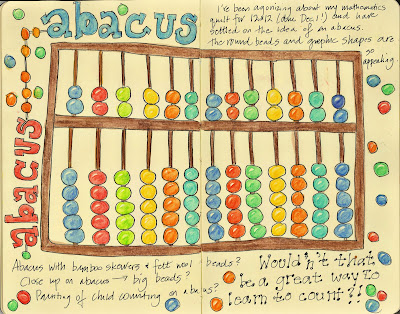 abacus
I've been agonizing about my mathematics
quilt for 12x12 (due Dec. 1!) and have
settled on the idea of an abacus.
the round beads and graphic shapes are
so
appealing.
abacus
Abacus with bamboo skewers & felt wool beads?
Close up on abacus → big beads?
Painting of child counting on abacus?
Wouldn't that
be a great way to
learn to count!!